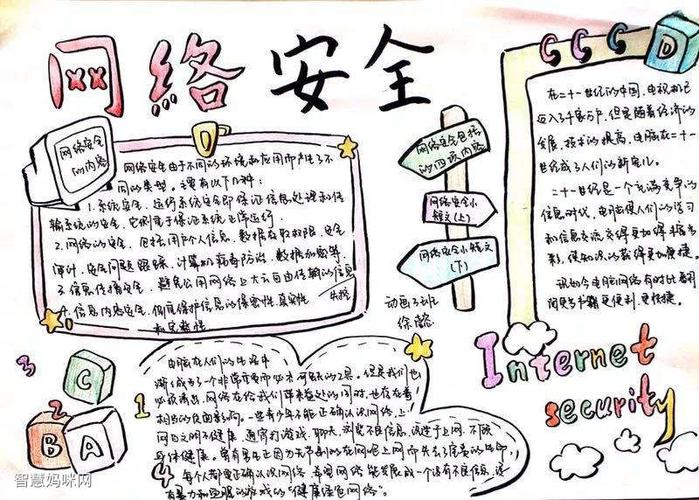 网络安全
网络安全
的内容
D
网络安全由于不同的环境和应用而产生了不
同的类型。主要有以下几种：
1. 系统安全，运行系统安全即保证信息处理和传
输系统的安全，它侧重于保证系统正常运行。
2. 网络的安全，包括用户个人信息，数据存取权限，安全
审计，安全问题跟踪，计算机病毒防治，数据加密等。
3 信息传播安全，避免公用网络上大云自由传输的信息
失控
4. 信息内容安全，侧重保护信息的保密性，真实性
和完整性
网络安全包括
的四项内容
网络安全小
短文(上)
网络安全小短文
(下)
动画
徐懿
D
在二十一世纪的中国，电视机已
迈入了千家万户，但是随着经济的
发展，技术的提高，电脑在二十一
世纪成了人们的新宠儿。
二十一世纪是一个充满竞争的
信息时代，电脑使人们的学习
和信息交流变得更加得
使知识的获得更加便捷。
现如今电脑网络有时比看
更便利，更快捷。
Internet
security
3
C
2
B
A
1
4
电脑在人们的生活中
渐渐成为了一个非常重要而必不可缺的工具。但是我们也
必须清楚，网络在给我们带来益处的同时，也存在着
相当的负面影响。一些青少年不能正确认识网络，上
网日文明不健康，通宵打游戏，聊天，浏览不良信息，沉迷于上网，不顾
身体健康。曾有学生因为无节制的在网吧上网而失去了宝贵的生命，
每个人都要正确认识网络，希望网络能发展成一个没有不良信息，没
有暴力和血腥的游戏的“健康绿色网络”。
智慧妈咪网